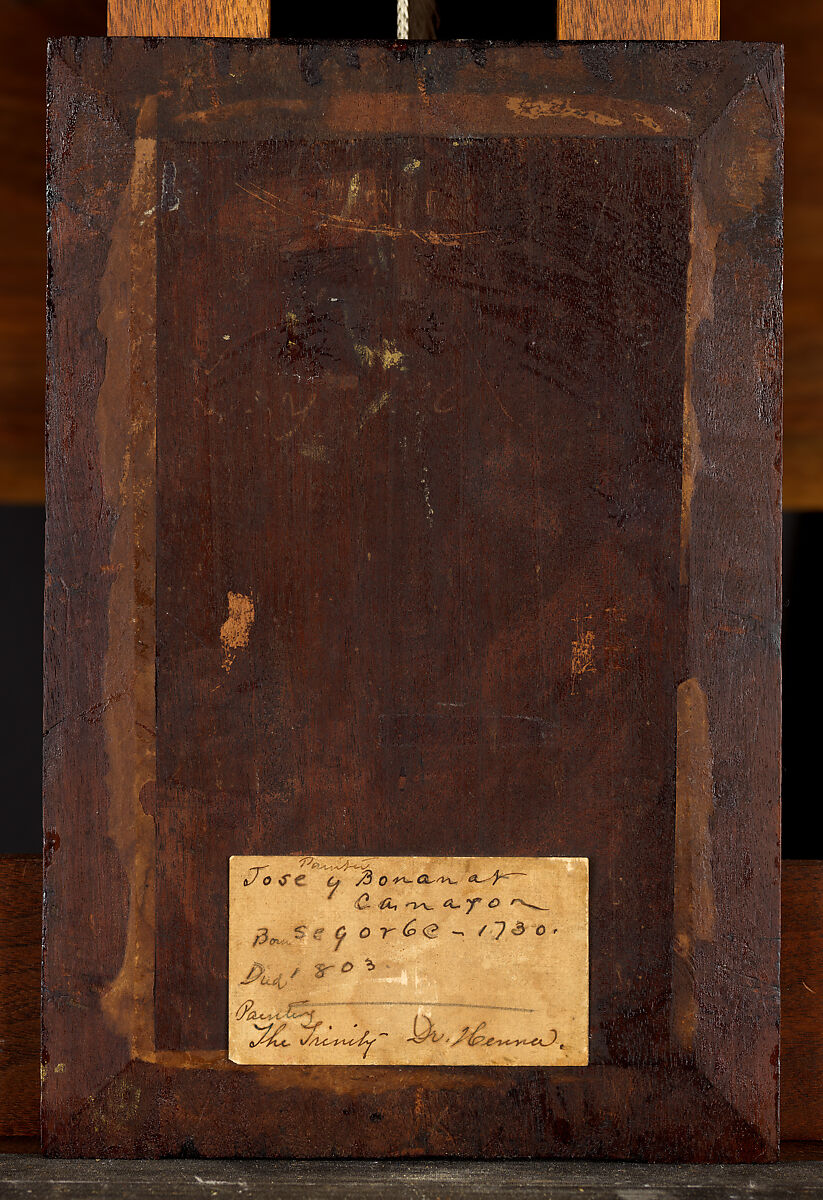 Painter
Jose y Bonanat
Camaron
Born Segorbe - 1730.
Died 1803.
Painting
The Trinity Dr. Henna.